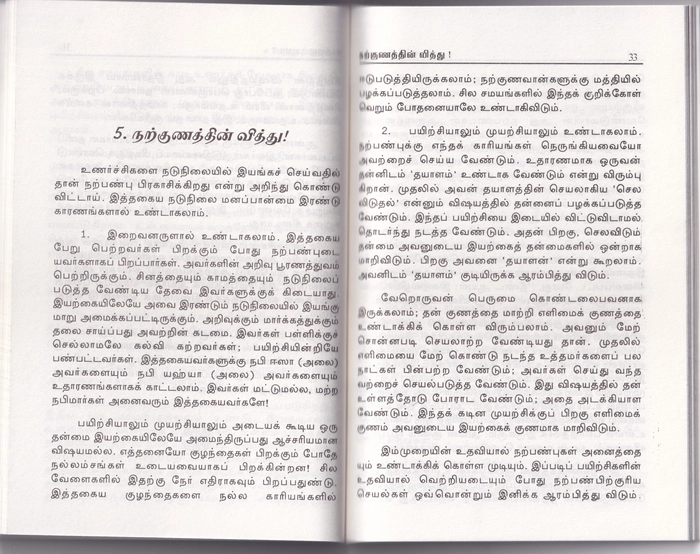 5. நற்குணத்தின் வித்து!
உணர்ச்சிகளை நடுநிலையில் இயங்கச் செய்வதில்
தான் நற்பண்பு பிரகாசிக்கிறது என்று அறிந்து கொண்டு
விட்டாய். இத்தகைய நடுநிலை மனப்பான்மை இரண்டு
காரணங்களால் உண்டாகலாம்.
1. இறைவனருளால் உண்டாகலாம். இத்தகைய
பேறு பெற்றவர்கள் பிறக்கும் போது நற்பண்புடை
யவர்களாகப் பிறப்பார்கள். அவர்களின் அறிவு பூரணத்துவம்
பெற்றிருக்கும். சினத்தையும் காமத்தையும் நடுநிலைப்
படுத்த வேண்டிய தேவை இவர்களுக்குக் கிடையாது.
இயற்கையிலேயே அவை இரண்டும் நடுநிலையில் இயங்கு
மாறு அமைக்கப்பட்டிருக்கும். அறிவுக்கும் மார்க்கத்துக்கும்
தலை சாய்ப்பது அவற்றின் கடமை. இவர்கள் பள்ளிக்குச்
செல்லாமலே கல்வி கற்றவர்கள்; பயிற்சியின்றியே
பண்பட்டவர்கள். இத்தகையவர்களுக்கு நபி ஈஸா (அலை)
அவர்களையும் நபி யஹ்யா (அலை) அவர்களையும்
உதாரணங்களாகக் காட்டலாம். இவர்கள் மட்டுமல்ல, மற்ற
நபிமார்கள் அனைவரும் இத்தகையவர்களே!
பயிற்சியாலும் முயற்சியாலும் அடையக் கூடிய ஒரு
தன்மை இயற்கையிலேயே அமைந்திருப்பது ஆச்சரியமான
விஷயமல்ல. எத்தனையோ குழந்தைகள் பிறக்கும் போதே
நல்லம்சங்கள் உடையவையாகப் பிறக்கின்றன! சில
வேளைகளில் இதற்கு நேர் எதிராகவும் பிறப்பதுண்டு.
இத்தகைய குழந்தைகளை நல்ல காரியங்களில்
நற்குணத்தின் வித்து ! 33
ஈடுபடுத்தியிருக்கலாம்; நற்குணவான்களுக்கு மத்தியில்
பழக்கப்படுத்தலாம். சில சமயங்களில் இந்தக் குறிக்கோள்
வெறும் போதனையாலே உண்டாகிவிடும்.
2. பயிற்சியாலும் முயற்சியாலும் உண்டாகலாம்.
நற்பண்புக்கு எந்தக் காரியங்கள் நெருங்கியவையோ
அவற்றைச் செய்ய வேண்டும். உதாரணமாக ஒருவன்
தன்னிடம் 'தயாளம்' உண்டாக வேண்டும் என்று விரும்பு
கிறான். முதலில் அவன் தயாளத்தின் செயலாகிய 'செல
விடுதல்' என்னும் விஷயத்தில் தன்னைப் பழக்கப்படுத்த
வேண்டும். இந்தப் பயிற்சியை இடையில் விட்டுவிடாமல்
தொடர்ந்து நடத்த வேண்டும். அதன் பிறகு, செலவிடும்
தன்மை அவனுடைய இயற்கைத் தன்மைகளில் ஒன்றாக
மாறிவிடும். பிறகு அவனை 'தயாளன்' என்று கூறலாம்.
அவனிடம் 'தயாளம்' குடியிருக்க ஆரம்பித்து விடும்.
வேறொருவன் பெருமை கொண்டலைபவனாக
இருக்கலாம்; தன் குணத்தை மாற்றி எளிமைக் குணத்தை
உண்டாக்கிக் கொள்ள விரும்பலாம். அவனும் மேற்
சொன்னபடி செயலாற்ற வேண்டியது தான். முதலில்
எளிமையை மேற் கொண்டு நடந்த உத்தமர்களைப் பல
நாட்கள் பின்பற்ற வேண்டும்; அவர்கள் செய்து வந்த
வற்றைச் செயல்படுத்த வேண்டும். இது விஷயத்தில் தன்
உள்ளத்தோடு போராட வேண்டும்; அதை அடக்கியாள
வேண்டும். இந்தக் கடின முயற்சிக்குப் பிறகு எளிமைக்
குணம் அவனுடைய இயற்கைக் குணமாக மாறிவிடும்.
இம்முறையின் உதவியால் நற்பண்புகள் அனைத்தை
யும் உண்டாக்கிக் கொள்ள முடியும். இப்படிப் பயிற்சிகளின்
உதவியால் வெற்றியடையும் போது நற்பண்பிற்குரிய
செயல்கள் ஒவ்வொன்றும் இனிக்க ஆரம்பித்து விடும்.